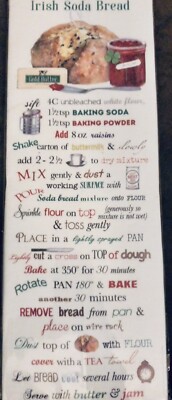 Irish Soda Bread
Gold Butter
sift 4C unbleached white flour
1½ tsp BAKING SODA
1½ tsp BAKING POWDER
Add 8 oz raisins
Shake carton of buttermilk & slowly
add 2 - 2½ to dry mixture
MIX gently & dust a
working SURFACE with
POUR Soda bread mixture onto FLOUR
Sprinkle flour on top (generously so mixture is not wet)
& toss gently
PLACE in a lightly sprayed PAN
Lightly cut a cross on TOP of dough
Bake at 350° for 30 minutes
Rotate PAN 180° & BAKE
another 30 minutes
REMOVE bread from pan &
place on wire rack
Dust top of with FLOUR
cover with a TEA towel
Let BREAD cool several hours
Serve with butter & jam